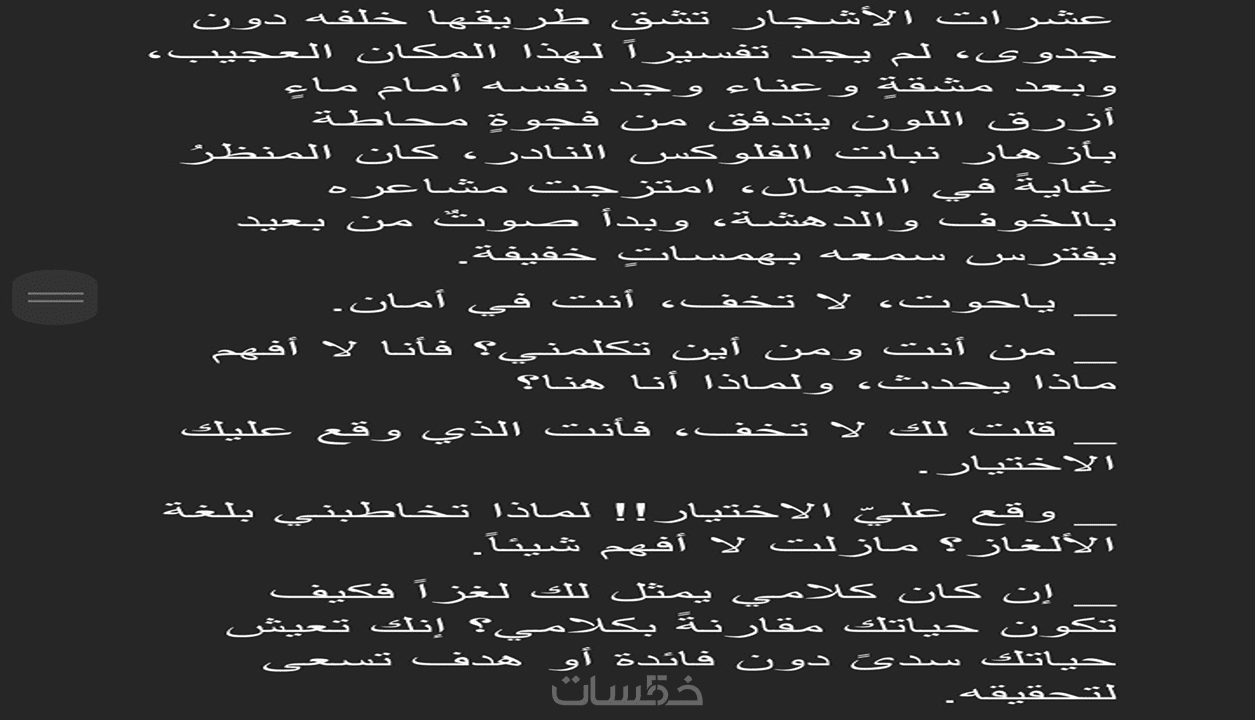 عشرات الأشجار تشق طريقها خلفه دون
جدوى، لم يجد تفسيراً لهذا المكان العجيب،
وبعد مشقةٍ وعناء وجد نفسه أمام ماءٍ
أزرق اللون يتدفق من فجوةٍ محاطة
بأزهار نبات الفلوكس النادر، كان المنظرُ
غايةً في الجمال، امتزجت مشاعره
بالخوف والدهشة، وبدأ صوتٌ من بعيد
يفترس سمعه بهمساتٍ خفيفة.
__ ياحوت، لا تخف، أنت في أمان.
__ من أنت ومن أين تكلمني؟ فأنا لا أفهم
ماذا يحدث، ولماذا أنا هنا؟
__ قلت لك لا تخف، فأنت الذي وقع عليك
الاختيار.
__ وقع عليّ الاختيار!! لماذا تخاطبني بلغة
الألغاز؟ مازلت لا أفهم شيئاً.
__ إن كان كلامي يمثل لك لغزاً فكيف
تكون حياتك مقارنةً بكلامي؟ إنك تعيش
حياتك سدىً دون فائدة أو هدف تسعى
لتحقيقه.
خمسات